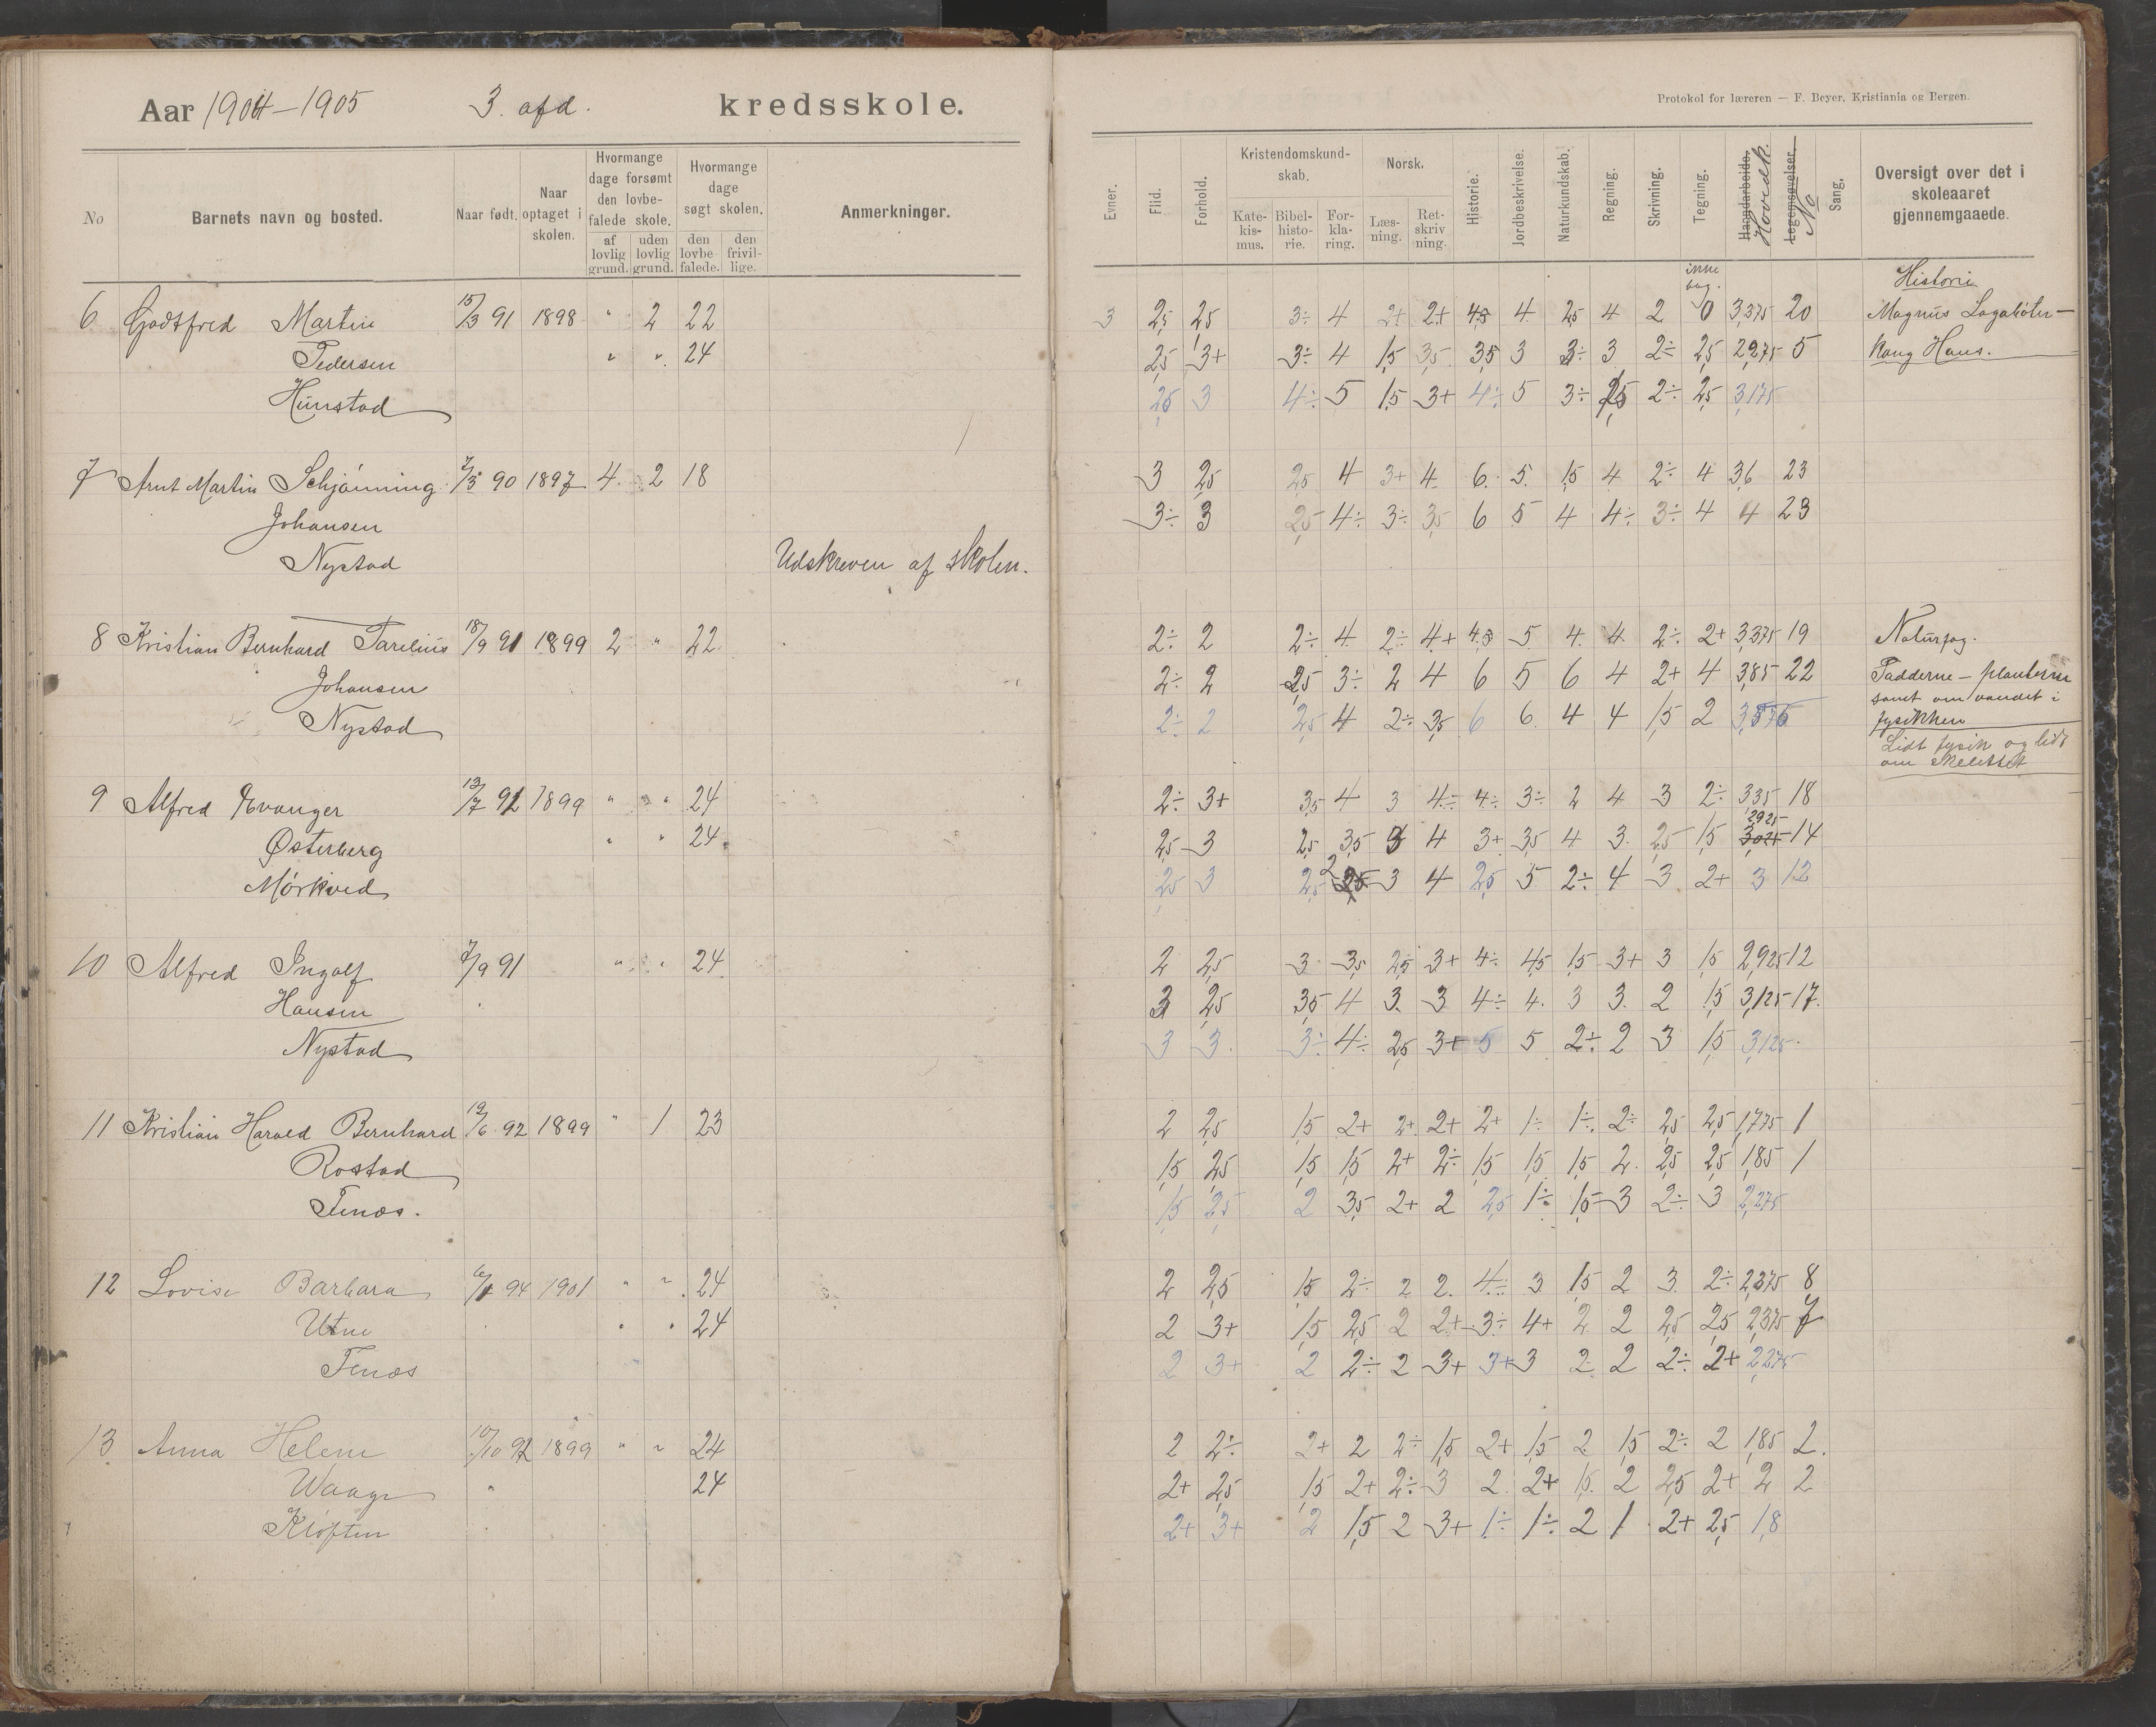 Aar 1904-1905 3. afd. kredsskole.
Protokol for læreren — F. Beyer, Kristiania og Bergen.
No Barnets navn og bosted. Naar født. Naar optaget i skolen. Hvormange dage forsømt den lovbefalede skole. af lovlig grund. uden lovlig grund. Hvormange dage søgt skolen. den lovbefalede. den frivillige. Anmerkninger.
Evner. Flid. Forhold. Kristendomskundskab. Katekismus. Bibelhistorie. Forklaring. Norsk. Læsning. Retskrivning. Historie. Jordbeskrivelse. Naturkundskab. Regning. Skrivning. Tegning. Haandarbeide. Hovedk. Legemsøvelser. No Sang. Oversigt over det i skoleaaret gjennemgaaede.
Historie
6 Godtfred Martin 15/3 91 1898 " 2 22 3 2,5 2,5 3÷ 4 2+ 2+ 4,5 4 2,5 4 2 0 3,375 20 Magnus Lagabøter —
Pedersen " " 24 2,5 3+ 3÷ 4 1,5 3,5 3,5 3 3÷ 3 2÷ 2,5 2,975 5 Kong Hans.
Hunstad 2,5 3 4÷ 5 1,5 3+ 4÷ 5 3÷ 2,5 2÷ 2,5 3,175
7 Arnt Martin Schjønning 7/3 90 1897 4 2 18 3 2,5 2,5 4 3+ 4 6 5 1,5 4 2÷ 4 3,6 23
Johansen 3÷ 3 2,5 4÷ 3÷ 3,5 6 5 4 4÷ 3÷ 4 4 23
Nystad Udskreven af skolen.
8 Kristian Bernhard Parelius 18/9 91 1899 2 " 22 2÷ 2 2÷ 4 2÷ 4+ 4,5 5 4 4 2÷ 2+ 3,375 19 Naturfag.
Johansen 2÷ 2 2,5 3÷ 2 4 6 5 6 4 2+ 4 3,85 22 Padderne — planterne
samt om vandet i
Nystad 2÷ 2 2,5 4 2÷ 3,5 6 6 4 4 1,5 2 3,575 fysikken
Lidt fysik og lidt
om skelettet
9 Alfred Evanger 13/7 92 1899 " " 24 2÷ 3+ 3,5 4 3 4÷ 4÷ 3÷ 2 4 3 2÷ 3,35 18
Østerberg " " 24 2,5 3 2,5 3,5 3 4 3+ 3,5 4 3 2,5 1,5 3,025 2,925 14
Mørkved 2,5 3 2,5 2 3 4 2,5 5 2÷ 4 3 2+ 3 12
10 Alfred Ingolf 7/9 91 " " 24 2 2,5 3 3,5 2,5 3+ 4÷ 4,5 1,5 3+ 3 1,5 2,925 12
Hansen 3 2,5 3,5 4 3 3 4÷ 4 3 3 2 1,5 3,125 17
Nystad 3 3 3÷ 4÷ 2,5 3+ 5 5 2÷ 2 3 1,5 3,125
11 Kristian Harald Bernhard 19/6 92 1899 " 1 23 2 2,5 1,5 2+ 2+ 2+ 2+ 1÷ 1÷ 2÷ 2,5 2,5 1,775 1
Rostad 1,5 2,5 1,5 1,5 2+ 2÷ 1,5 1,5 1,5 2 2,5 2,5 1,85 1
Tenæs. 1,5 2,5 2 3,5 2+ 2 2,5 1÷ 1,5 3 2÷ 3 2,275
12 Lovise Barbara 6/1 94 1901 " " 24 2 2,5 1,5 2÷ 2 2 4÷ 3 1,5 2 3 2÷ 2,375 8
Utne " " 24 2 3+ 1,5 2,5 2 2+ 3÷ 4+ 2 2 2,5 2,5 2,375 7
Tenæs 2 3+ 2 2÷ 2 3+ 3+ 3 2 2 2÷ 2+ 2,275
13 Anna Helene 10/10 92 1899 " " 24 2 2÷ 2+ 2 2÷ 1,5 2+ 1,5 2 1,5 2÷ 2 1,85 2.
Waage " 24 2+ 2,5 1,5 2+ 2÷ 3 2 2+ 1,5 2 2,5 2+ 2 2
Kløften 2+ 3+ 2 1,5 2 3+ 1÷ 1÷ 2 1 2+ 2,5 1,8